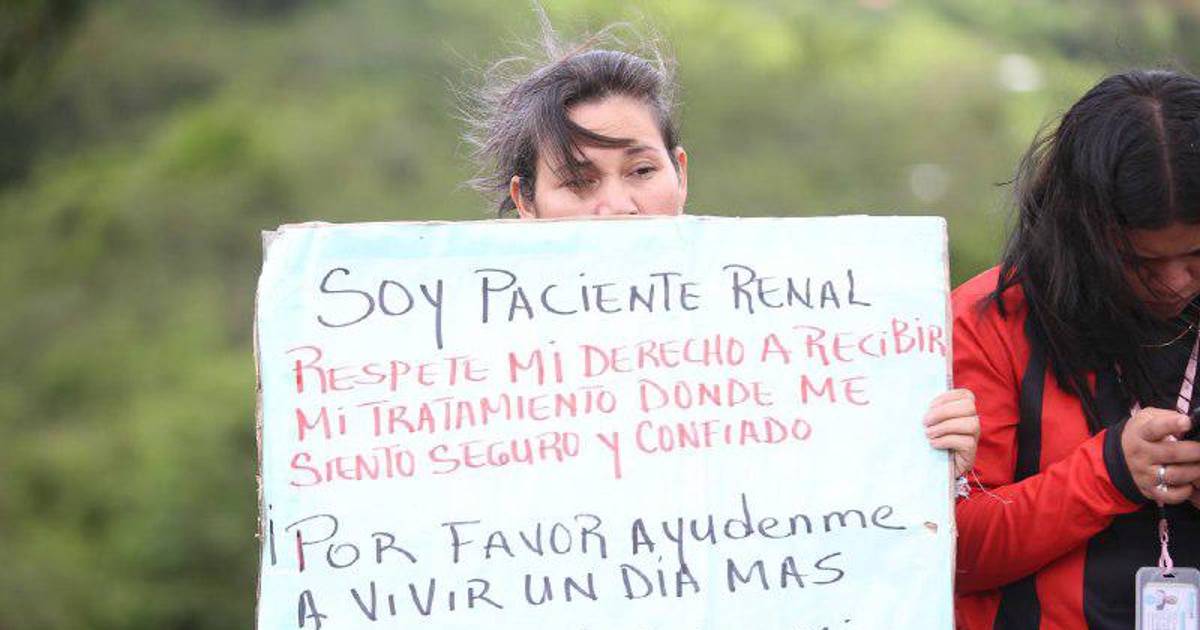 SOY PACIENTE RENAL
RESPETE MI DERECHO A RECIBIR
MI TRATAMIENTO DONDE ME
SIENTO SEGURO Y CONFIADO
¡POR FAVOR AYudenme
A VIVIR UN DÍA MAS